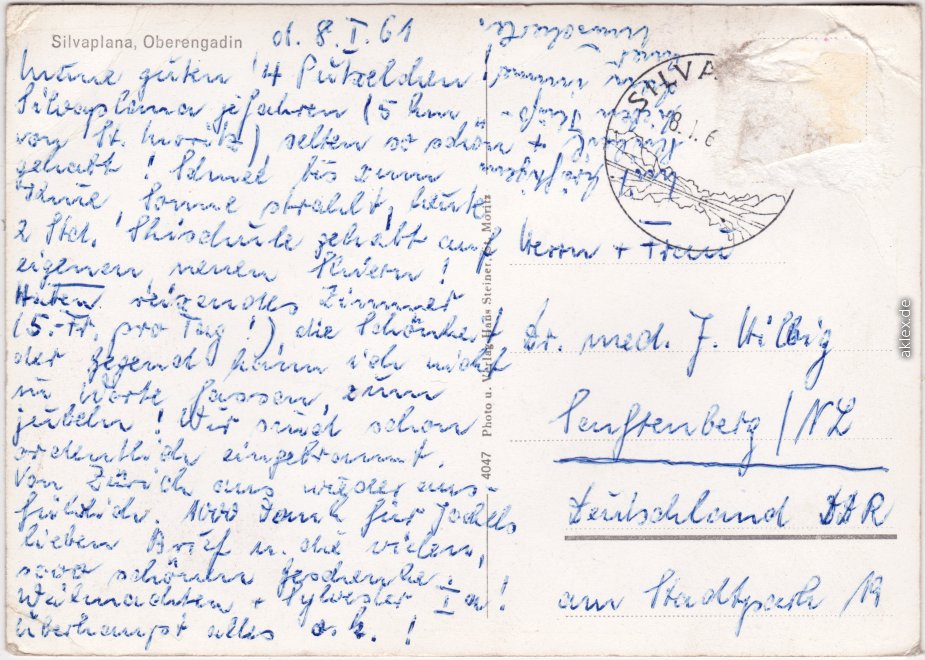 Silvaplana, Oberengadin
d. 8.I.61
Meine guten 4 Putzelchen!
Silvaplana jefahren (5 km
von St. Moritz) selten so schön
gehabt! Schnee bis zum
Sonne strahlt, heute
2 Std. Skischule gehabt auf
eigenen, neuen Skiern!
Haben reizendes Zimmer
(5.-Fr. pro Tag!) die Schönheit
der Gegend kann ich nicht
in Worte fassen, zum
jubeln! Wir sind schon
ordentlich eingebrannt.
Von Zürich aus wieder aus-
führlich. 1000 Dank für Jochels
lieben Brief u. die vielen,
sooo schönen Geschenke.
Weihnachten + Sylvester Ia!
überhaupt alles o.k.!
4047 Photo u. Verlag Hans Steiner, St. Moritz
SILVA
8.1.6
Herrn + Frau
Dr. med. J. Hilbig
Senftenberg/NL
Deutschland DDR
am Stadtpark 19
aklex.de